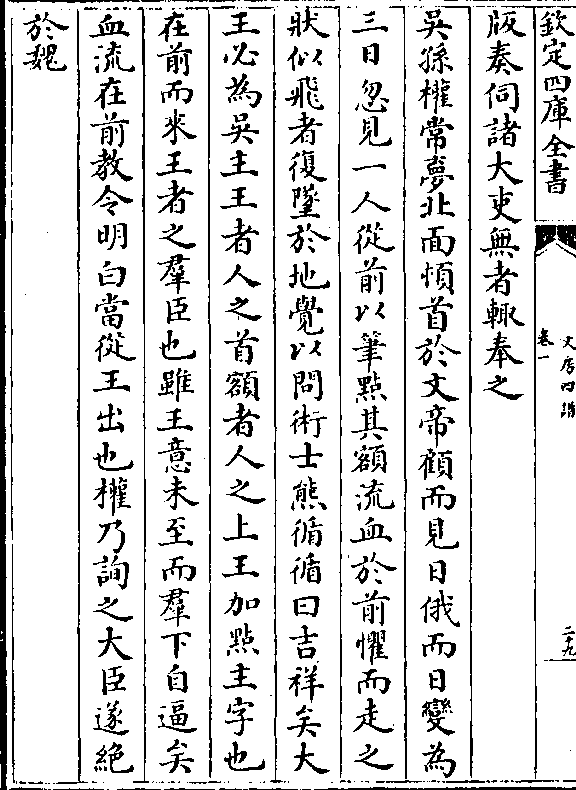 欽定四庫全書
文房四譜
卷一
二十九
版奏伺諸大吏無者輙奉之
吳孫權常夢北面頓首於文帝顧而見日俄而日變為
三日忽見一人從前以筆㸃其額流血於前懼而走之
狀似飛者復墜於地覺以問術士熊循循曰吉祥矣大
王必為吳主王者人之首額者人之上王加㸃主字也
在前而來王者之羣臣也雖王意未至而羣下自逼矣
血流在前教令明白當從王出也權乃詢之大臣遂絶
於魏